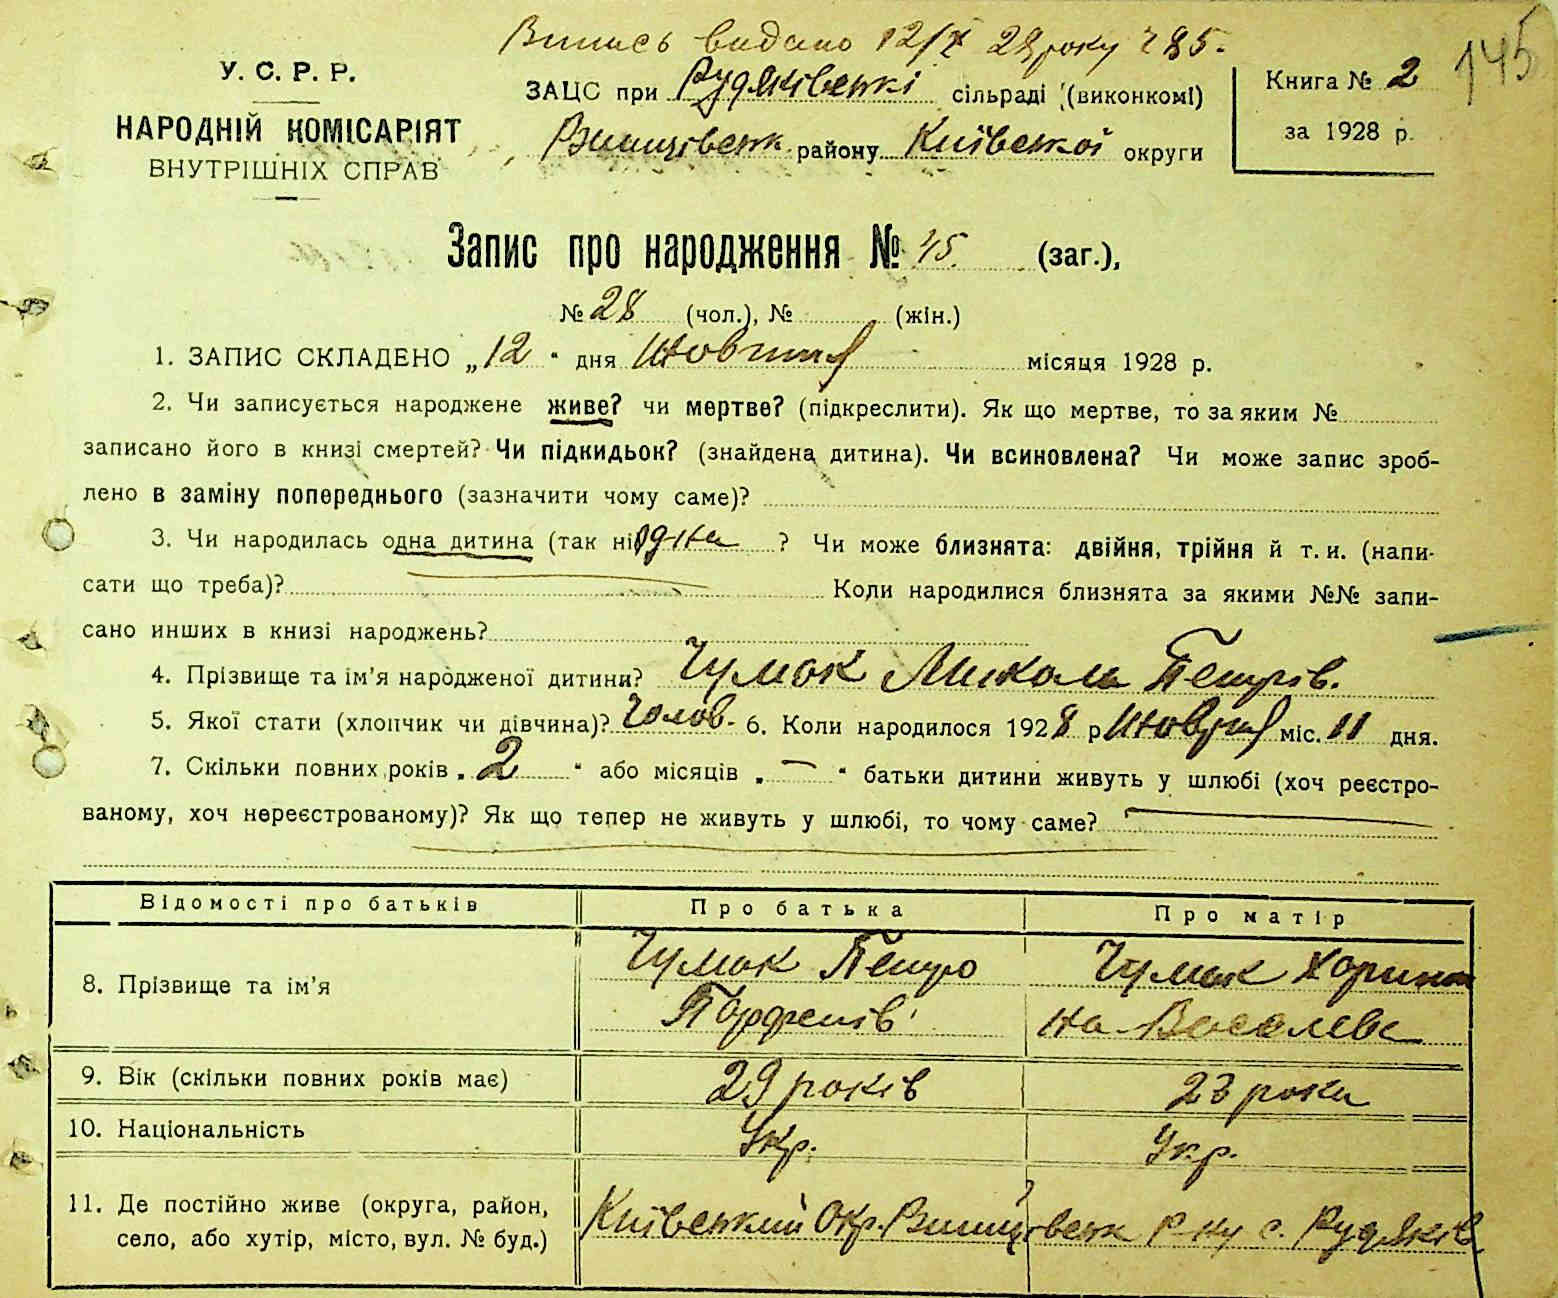 Випись видано 12/X 28 року № 85.
145
У. С. Р. Р.
НАРОДНІЙ КОМІСАРІЯТ
ВНУТРІШНІХ СПРАВ
ЗАЦС при Рудяківській сільраді (виконкомі)
Вищівськ. району Київської округи
Книга № 2
за 1928 р.
Запис про народження № 45. (заг.),
№ 28 (чол.), № (жін.)
1. ЗАПИС СКЛАДЕНО „12“ дня Жовтня місяця 1928 р.
2. Чи записується народжене живе? чи мертве? (підкреслити). Як що мертве, то за яким №
записано його в книзі смертей? Чи підкидьок? (знайдена дитина). Чи всиновлена? Чи може запис зроб-
лено в заміну попереднього (зазначити чому саме)?
3. Чи народилась одна дитина (так ні) одна ? Чи може близнята: двійня, трійня й т. и. (напи-
сати що треба)? Коли народилися близнята за якими №№ запи-
сано инших в книзі народжень?
4. Прізвище та ім'я народженої дитини? Чумак Микола Петрів.
5. Якої стати (хлопчик чи дівчина)? Чолов. 6. Коли народилося 1928 р Жовтня міс. 11 дня.
7. Скільки повних років „ 2 “ або місяців „ — “ батьки дитини живуть у шлюбі (хоч реєстро-
ваному, хоч нереєстрованому)? Як що тепер не живуть у шлюбі, то чому саме?
Відомості про батьків Про батька Про матір
8. Прізвище та ім'я
Чумак Петро
Парфенів
Чумак Харити
на
9. Вік (скільки повних років має) 29 років 23 роки
10. Національність Укр. Укр.
11. Де постійно живе (округа, район,
село, або хутір, місто, вул. № буд.)
Київський Окр. р-ну с. Рудяків